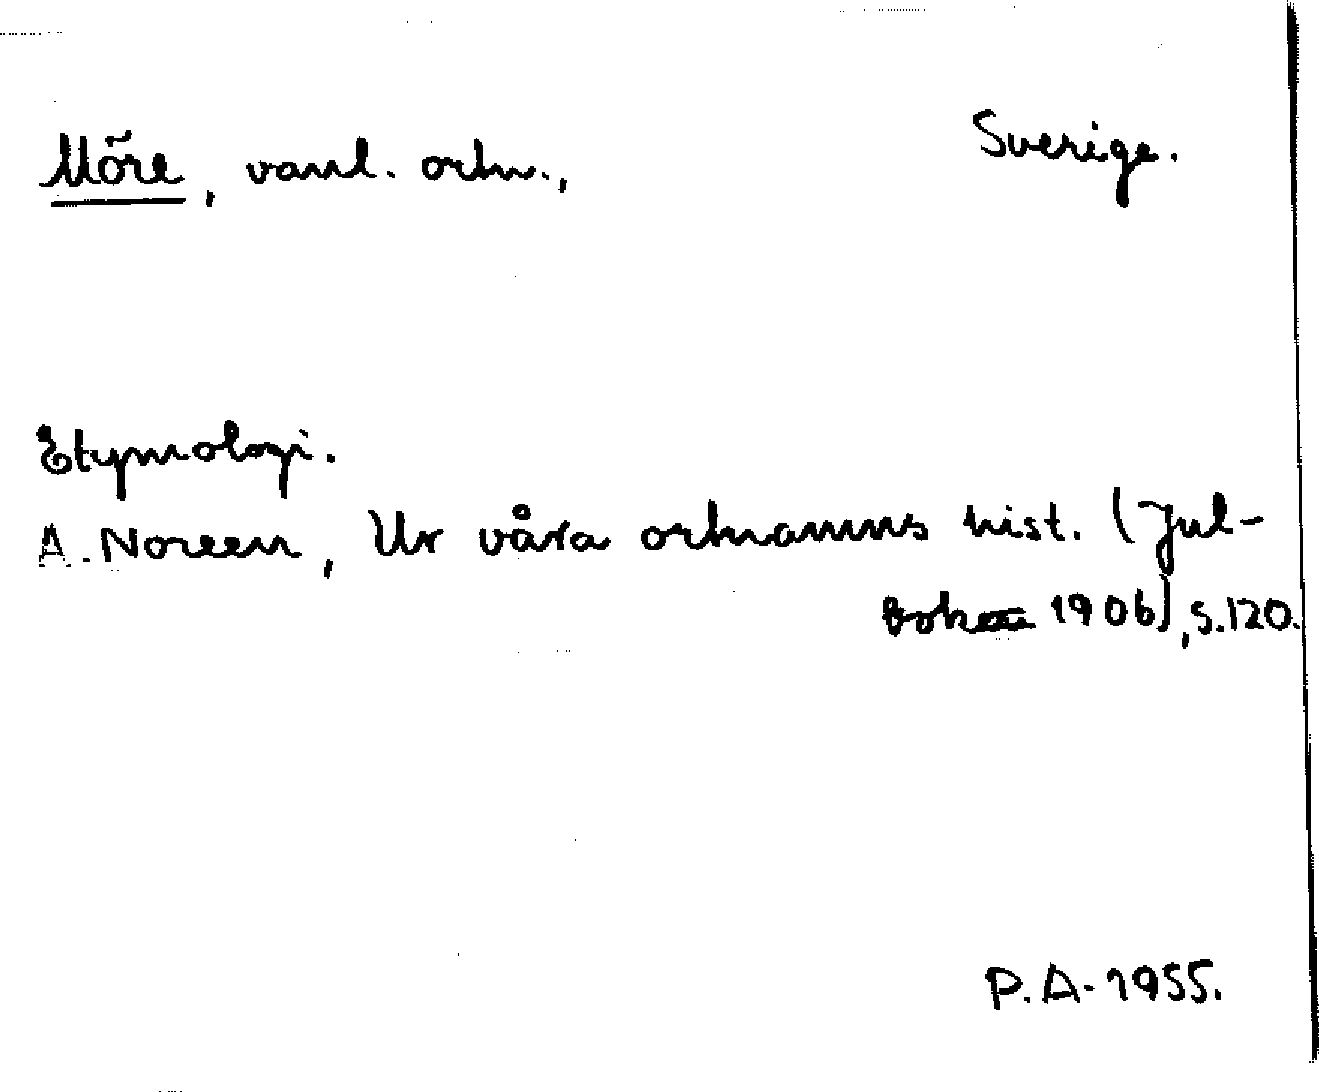 Möre, vanl. ortn., Sverige.
Etymologi.
A. Noreen, Ur våra ortnamns hist. (Jul-
boken 1906), s.120.
P.A. 1955.